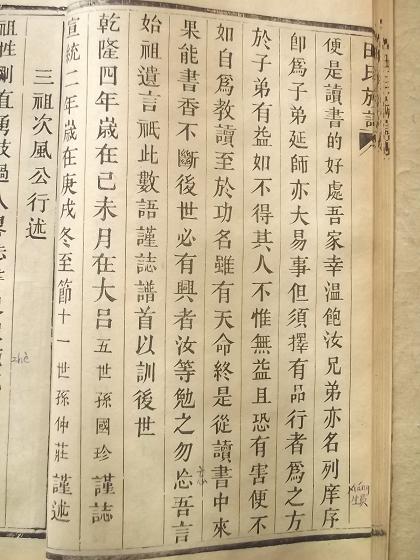 田氏族譜
便是讀書的好處吾家幸溫飽汝兄弟亦名列庠序
卽爲子弟延師亦大易事但須擇有品行者爲之方
於子弟有益如不得其人不惟無益且恐有害便不
如自爲教讀至於功名雖有天命終是從讀書中來
果能書香不斷後世必有興者汝等勉之勿忘吾言
始祖遺言祇此數語謹誌譜首以訓後世
乾隆四年歲在己未月在大呂五世孫國珍謹誌
宣統二年歲在庚戌冬至節十一世孫仲莊謹述
三祖次風公行述
祖性剛直勇敢過人
zhè
忘
xiáng
生員